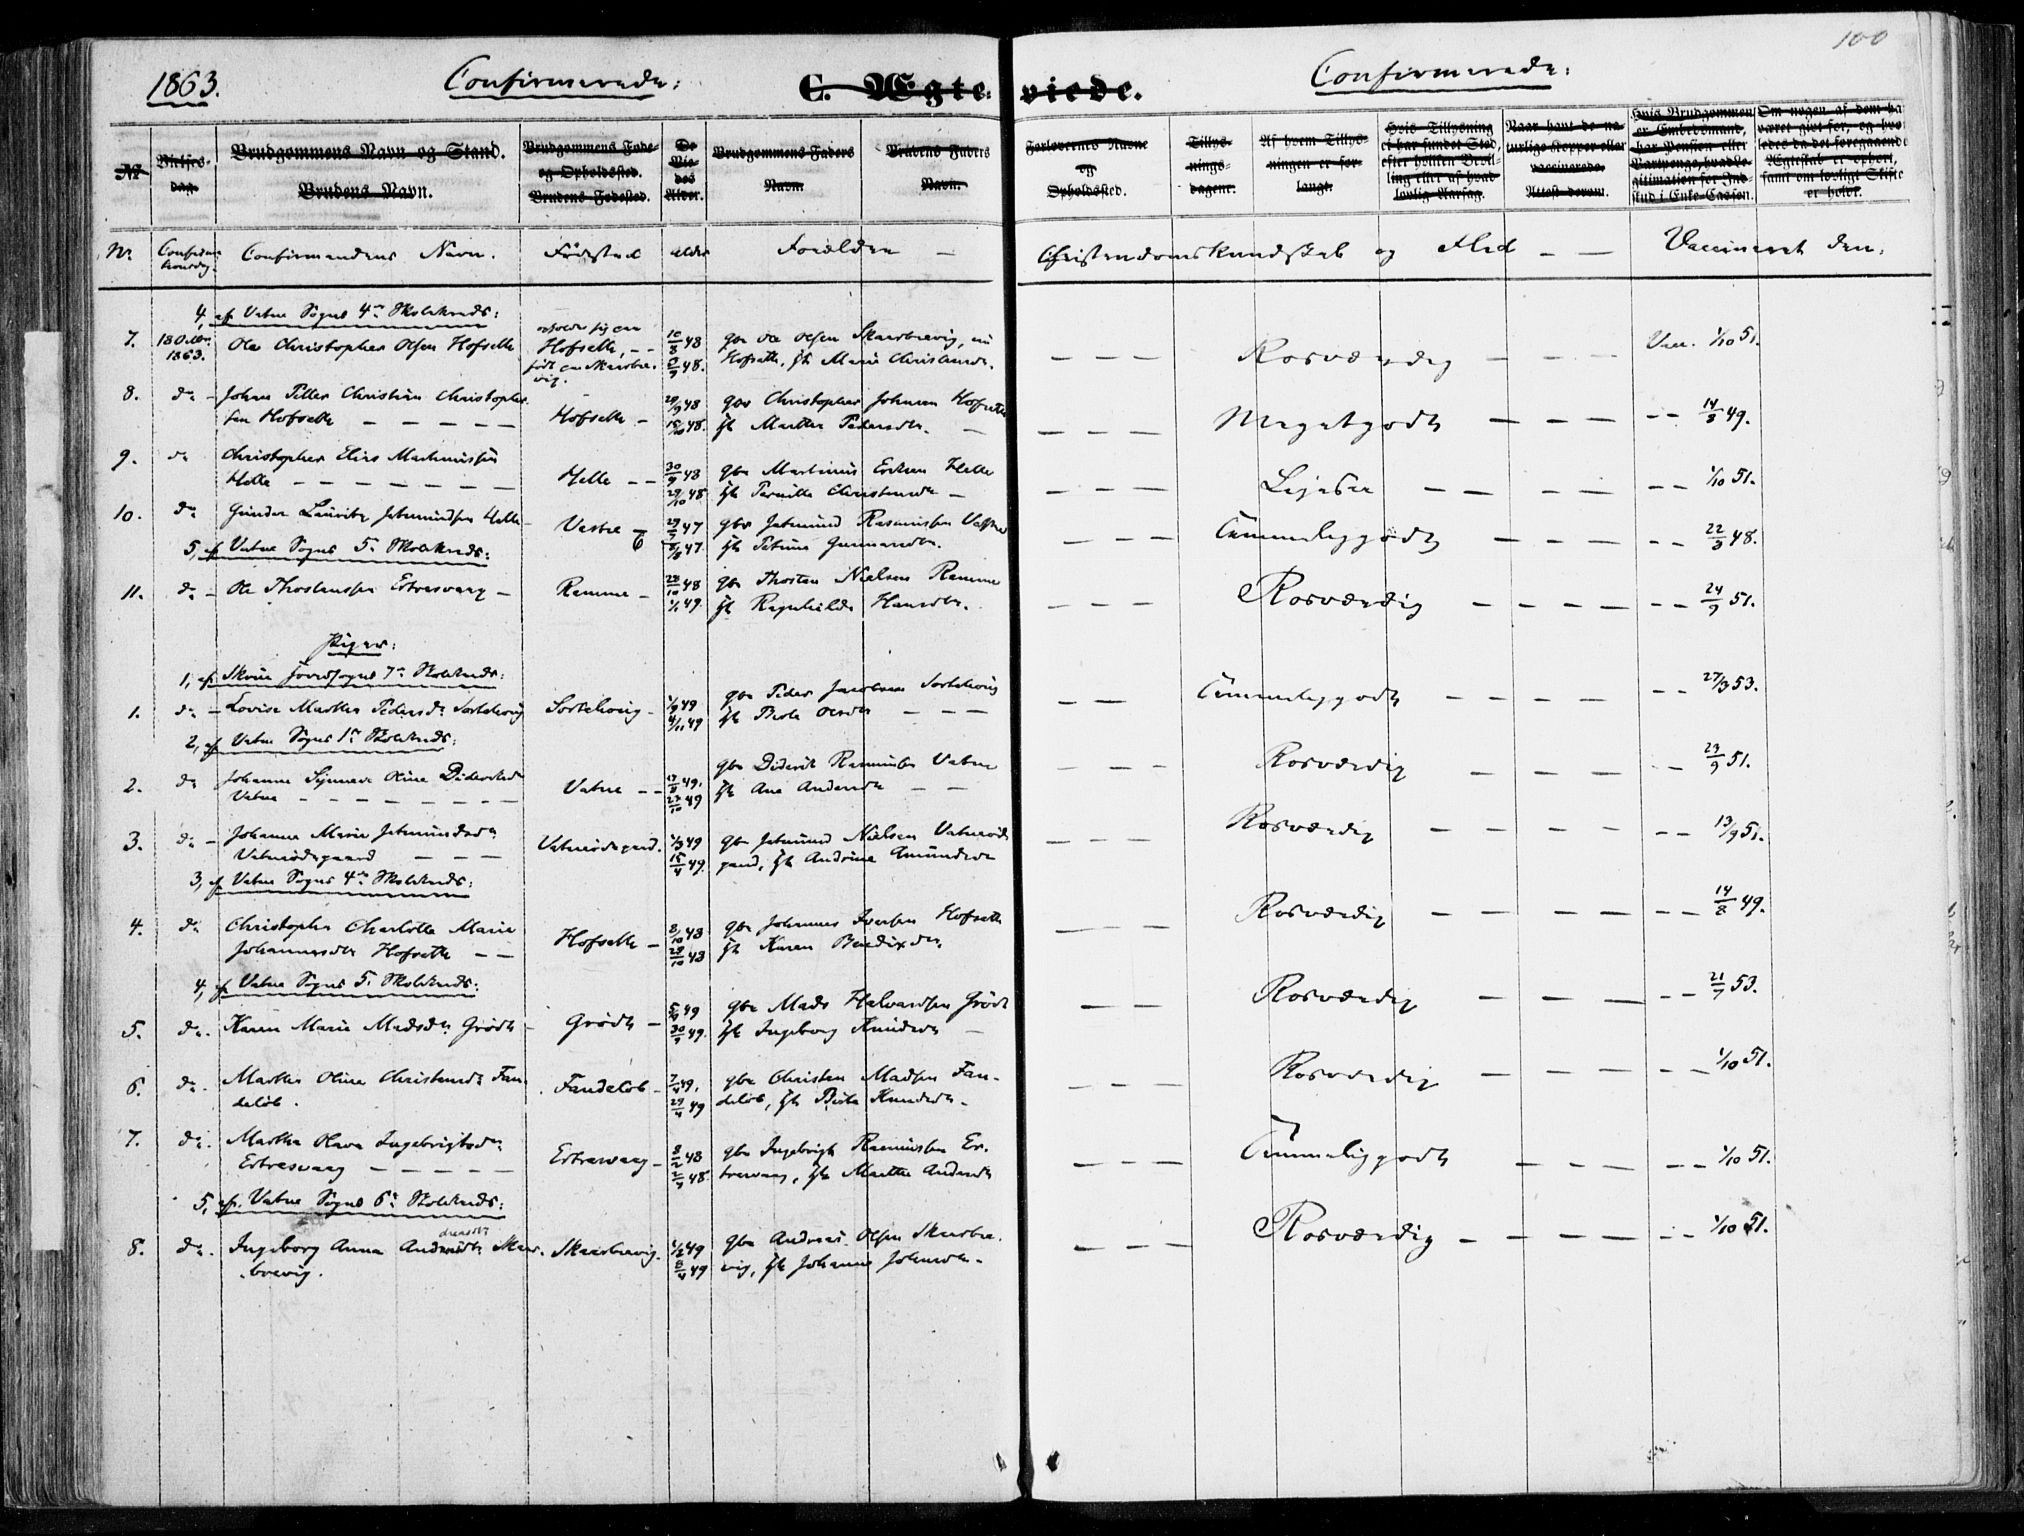 100
1863.
Confirmerede:
C. Ægte-
viede.
Confirmerede:
No
Vielses-
dag.
Brudgommens Navn og Stand.
Brudens Navn.
Brudgommens Føde-
og Opholdssted.
Brudens Fødested.
De
Vie-
des
Alder.
Brudgommens Faders
Navn.
Brudens Faders
Navn.
Forlovernes Navne
og
Opholdssted.
Tillys-
nings-
dagene.
Af hvem Tillys-
ningen er for-
langt.
Hvis Tillysning
ei har fundet Sted,
efter hvilken Bevil-
ling eller af hvad
lovlig Aarsag.
Naar havt de na-
turlige Kopper eller
vaccinerede.
Attest derom.
Hvis Brudgommen
er Embedsmand,
har Pension eller
Vartpenge, hvad Le-
gitimation for Ind-
skud i Enke-Cassen.
Om nogen af dem ha
været givt før, og hvo
ledes da det foregaaende
Ægteskab er ophørt,
samt om lovligt Skifte
er holdt.
Nr.
Confirma-
tionsdag.
Confirmandens Navn.
Fødested
Alder
Forældre —
Christendomskundskab og Flid — —
Vaccineret den:
4, af Vatne Sogns 4de Skolekreds:
7. 18 Octbr. 1863. Ole Christopher Olsen Hofseth
opholder sig paa
Hofseth, - -
født paa Skarbre-
vig.
10/8 48
Gbr Ole Olsen Skarbrevig, nu
Hofseth, Hu Marie Christensdr.
— — — Rosværdig — — — Vacc. 1/10 51.
8. do — Johan Petter Christian Christopher-
sen Hofseth — — — — —
Hofseth —
29/9 48
15/10 48.
Gbr Christopher Johnsen Hofseth
Hu Marthe Pedersdtr. —
— — — Megetgodt — — — - - 14/8 49.
9. do Christopher Elias Martinussen
Helle — — — — — — —
Helle - -
30/9 48
29/10 48
Gbr Martinus Eriksen Helle
Hu Pernille Christensdr —
— — — Ligesaa — — — - - 1/10 51.
10. do Gunder Lauritz Jetmundsen Helle
Vestre
47
47.
Gbr Jetmund Rasmussen
Hu Petrine Gunnersdtr.
Temmeliggodt — — — - - 22/3 48.
5, af Vatne Sogns 5te Skolekreds:
11. do — Ole Thorstensen Estresvaag —
Remme —
28/10 48
1/1 49.
Gbr Thorsten Nielsen Remme
Hu Ragnhilde Hansdtr.
— — — Rosværdig — — — — - - 24/9 51.
Piger:
1, af Skoue Hovedsogns 7de Skolekreds:
1. do — Lovise Marthe Pedersdr Sortehoug
Sortehoug —
1/9 49
4/11 49
Gbr Peder Jacobsen Sortehoug
Hu Berte Olsdtr — — —
— — Temmeliggodt — — — — - - 27/3 53.
2, af Vatne Sogns 1ste Skolekreds:
2. do Johanne Synneve Oline Dideriksdr
Vatne — — — — — — —
Vatne - -
49.
27/10 49
Gbr Diderik Rasmussen Vatne
Hu Ane Andersdr — —
— — — Rosværdig — — — - - 23/9 51.
3. do — Johanne Marie Jetmundsdr
Vatneødegaard — — —
Vatneødegaard.
1/3 49
15/4 49.
Gbr Jetmund Nielsen Vatneøde
gaard, Hu Andrine Amundsdr
— — — Rosværdig — — — — - - 13/9 51.
3, af Vatne Sogns 4de Skolekreds:
4. do Christophe Charlotte Marie
Johannesdtr Hofseth — —
Hofseth —
8/10 48
28/10 48
Gbr Johannes Iversen Hofseth
Hu Karen Bendixdtr
— — — Rosværdig — — — — - - 14/8 49.
4, af Vatne Sogns 5te Skolekreds:
5. do. Karen Marie Madsdr Grødt —
Grødt —
49
49.
Gbr Mads Halvardsen Grødt
Hu Ingeborg Knudsdtr —
— — Rosværdig — — — - - 21/7 53.
6. do. Marthe Oline Christensdr Fan-
deløb.
Fandeløb —
49.
29/4 49
Gbr Christen Madsen Fan-
deløb, Hu Berte Knudsdtr.
— — — Rosværdig — — — - - 1/10 51.
7. do. Marthe Olava Ingebrigtsdr
Estresvaag — — — — —
Estresvaag —
48
48.
Gbr Ingebrigt Rasmussen Es-
tresvaag, Hu Marthe Andersdr
— — — Temmeliggodt — — — - - 1/10 51.
5, af Vatne Sogns 6te Skolekreds:
8. do. Ingeborg Anna Skar-
brevig.
Skarbrevig.
1/2 49
8/4 49
Gbr Andreas Olsen Skarbre-
vig, Hu Johanne Johnsdtr.
— — — Rosværdig — — — — - - 1/10 51.